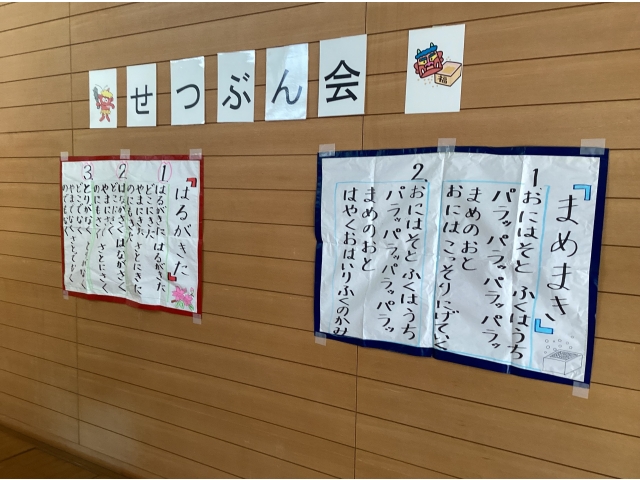 せつぶん会
福
『はるがきた』
1 はるがきた はるがきた
どこにきた
やまにきた さとにきた
のにもきた
2 はながさく はながさく
どこにさく
やまにさく さとにさく
のにもさく
3 とりがなく とりがなく
どこでなく
やまでなく さとでなく
のでもなく
『まめまき』
1. おにはそと ふくはうち
パラッパラッパラッパラッ
まめのおと
おにはこっそりにげていく
2. おにはそと ふくはうち
パラッパラッパラッパラッ
まめのおと
はやくおはいりふくのかみ